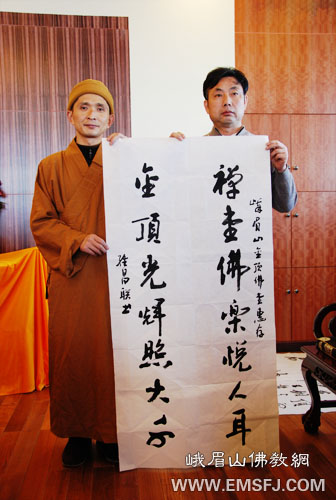 峨眉山金顶佛堂惠存
禅堂佛樂悦人耳
金頂光輝照大千
昌联书
峨眉山佛教網
WWW.EMSFJ.COM